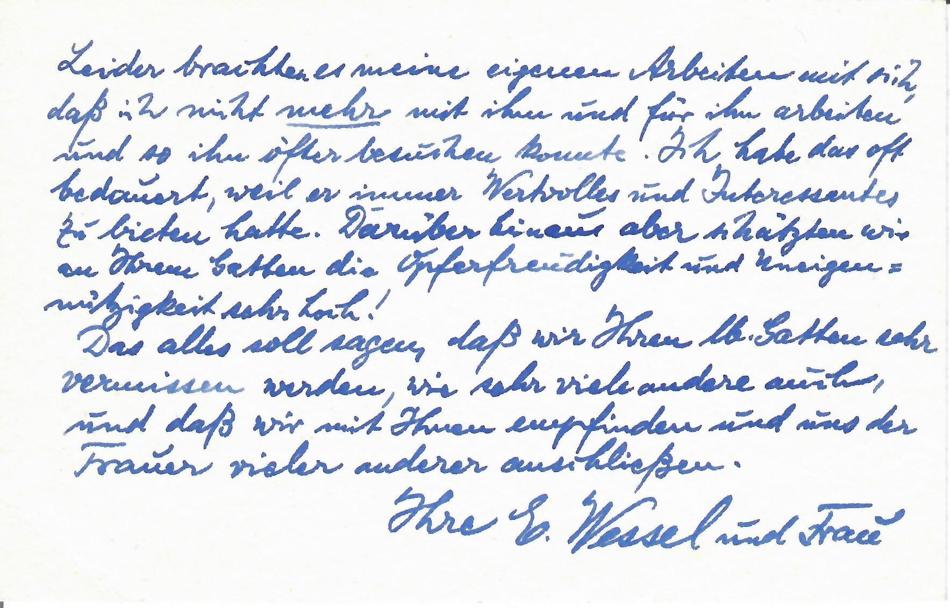 Leider brachten es meine eigenen Arbeiten mit sich,
daß ich nicht mehr mit ihm und für ihn arbeiten
und so ihn öfter besuchen konnte. Ich habe das oft
bedauert, weil er immer Wertvolles und Interessantes
zu bieten hatte. Darüber hinaus aber schätzten wir
an Ihrem Gatten die Opferfreudigkeit und Uneigen=
nützigkeit sehr hoch!
Das alles soll sagen, daß wir Ihren lb. Gatten sehr
vermissen werden, wie sehr viele andere auch,
und daß wir mit Ihnen empfinden und uns der
Trauer vieler anderer anschließen.
Ihre E. Wessel und Frau